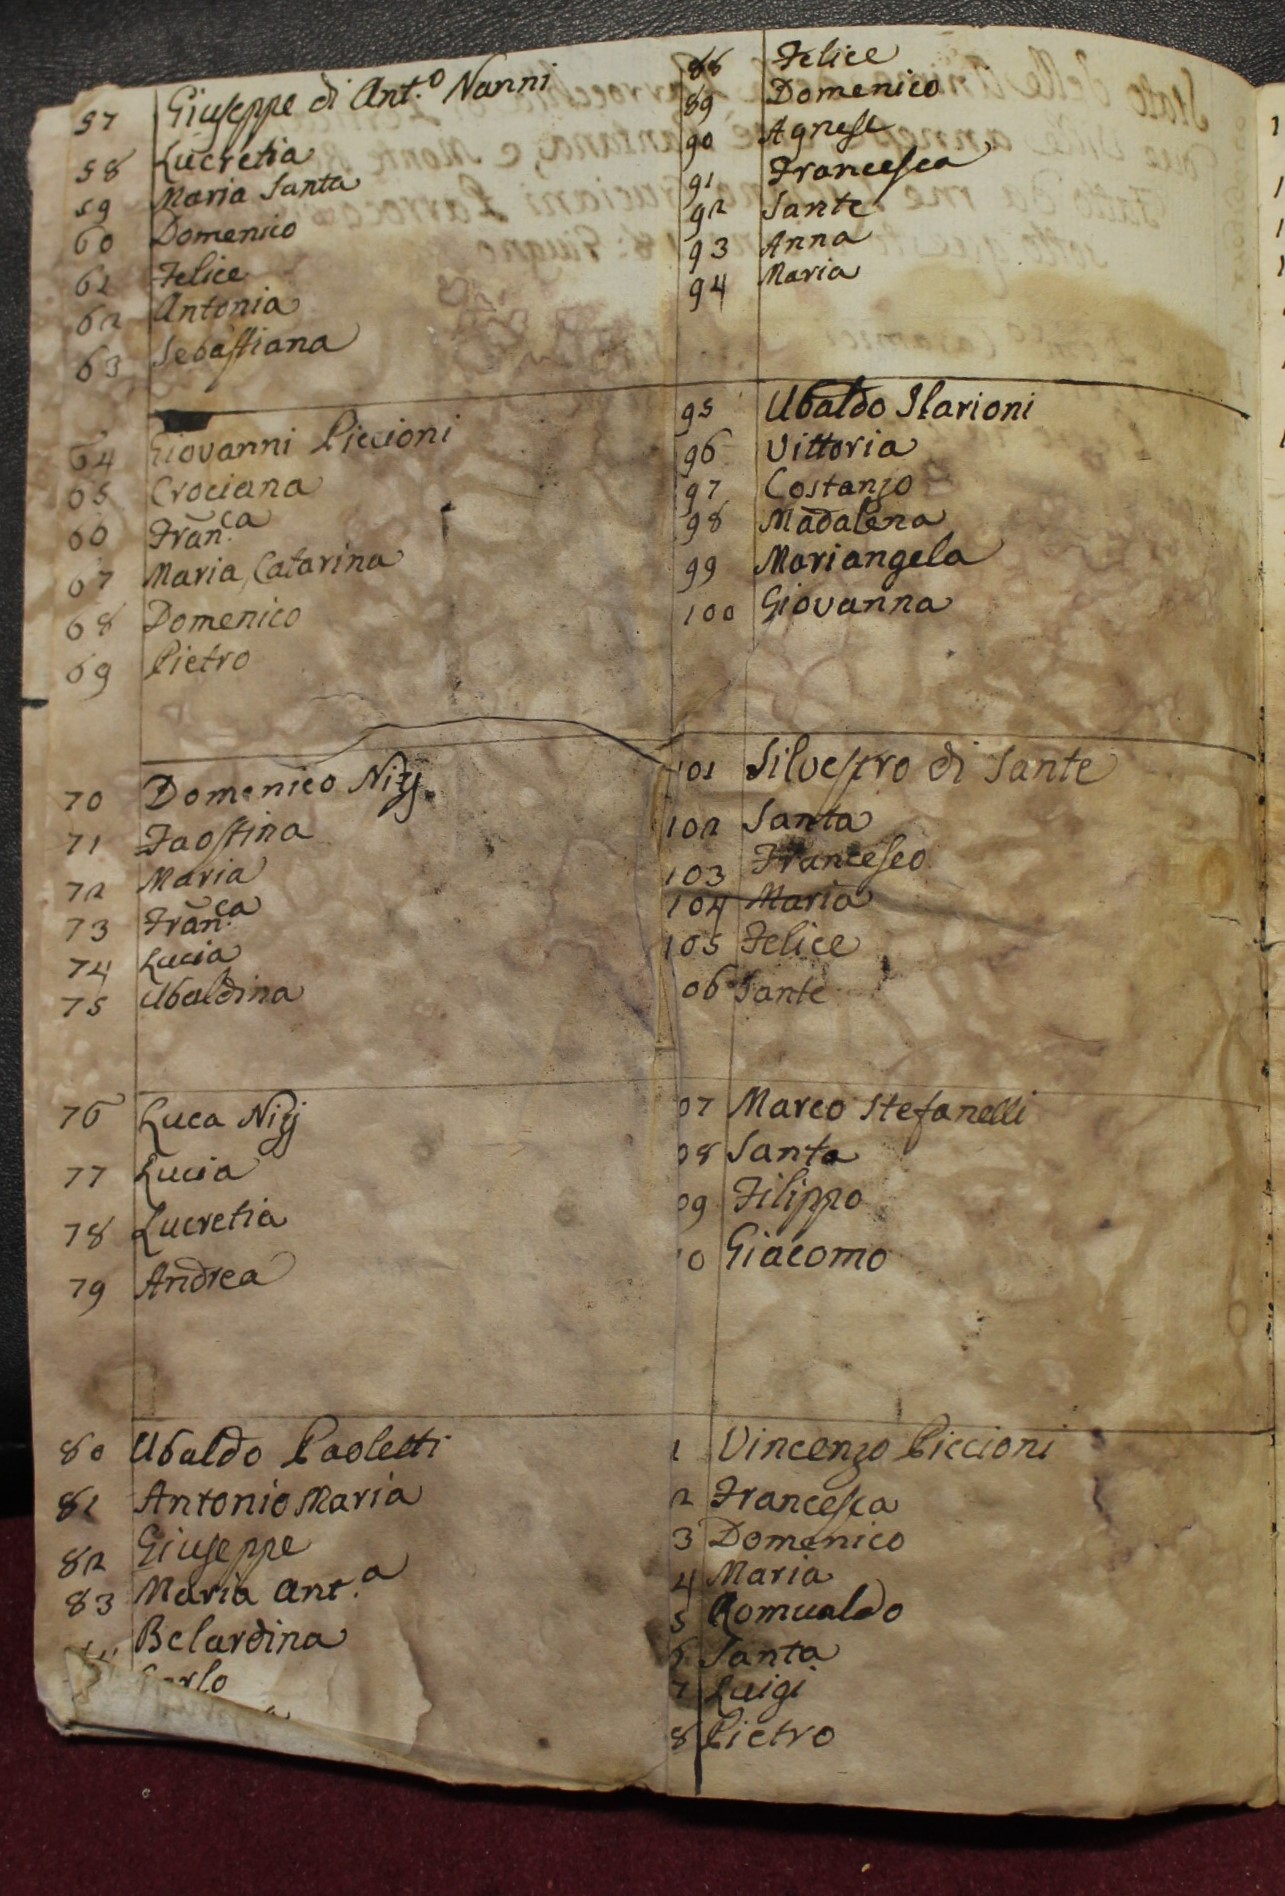 57 Giuseppe di Ant.o Nanni
58 Lucretia
59 Maria Santa
60 Domenico
61 Felice
62 Antonia
63 Sebastiana
64 Giovanni Piccioni
65 Crociana
66 Fran.ca
67 Maria Catarina
68 Domenico
69 Pietro
70 Domenico Nizj
71 Faostina
72 Maria
73 Fran.ca
74 Lucia
75 Ubaldina
76 Luca Nizj
77 Lucia
78 Lucretia
79 Andrea
80 Ubaldo Paoletti
81 Antonio Maria
82 Giuseppe
83 Maria Ant.a
Belardina
88 Felice
89 Domenico
90 Agnese
91 Francesca
92 Sante
93 Anna
94 Maria
95 Ubaldo Ilarioni
96 Vittoria
97 Costanzo
98 Madalena
99 Mariangela
100 Giovanna
101 Silvestro di Sante
102 Santa
103 Francesco
104 Maria
105 Felice
06 Sante
07 Marco Stefanelli
08 Santa
09 Filippo
10 Giacomo
1 Vincenzo Piccioni
2 Francesca
3 Domenico
4 Maria
5 Romualdo
6 Santa
7 Luigi
8 Pietro